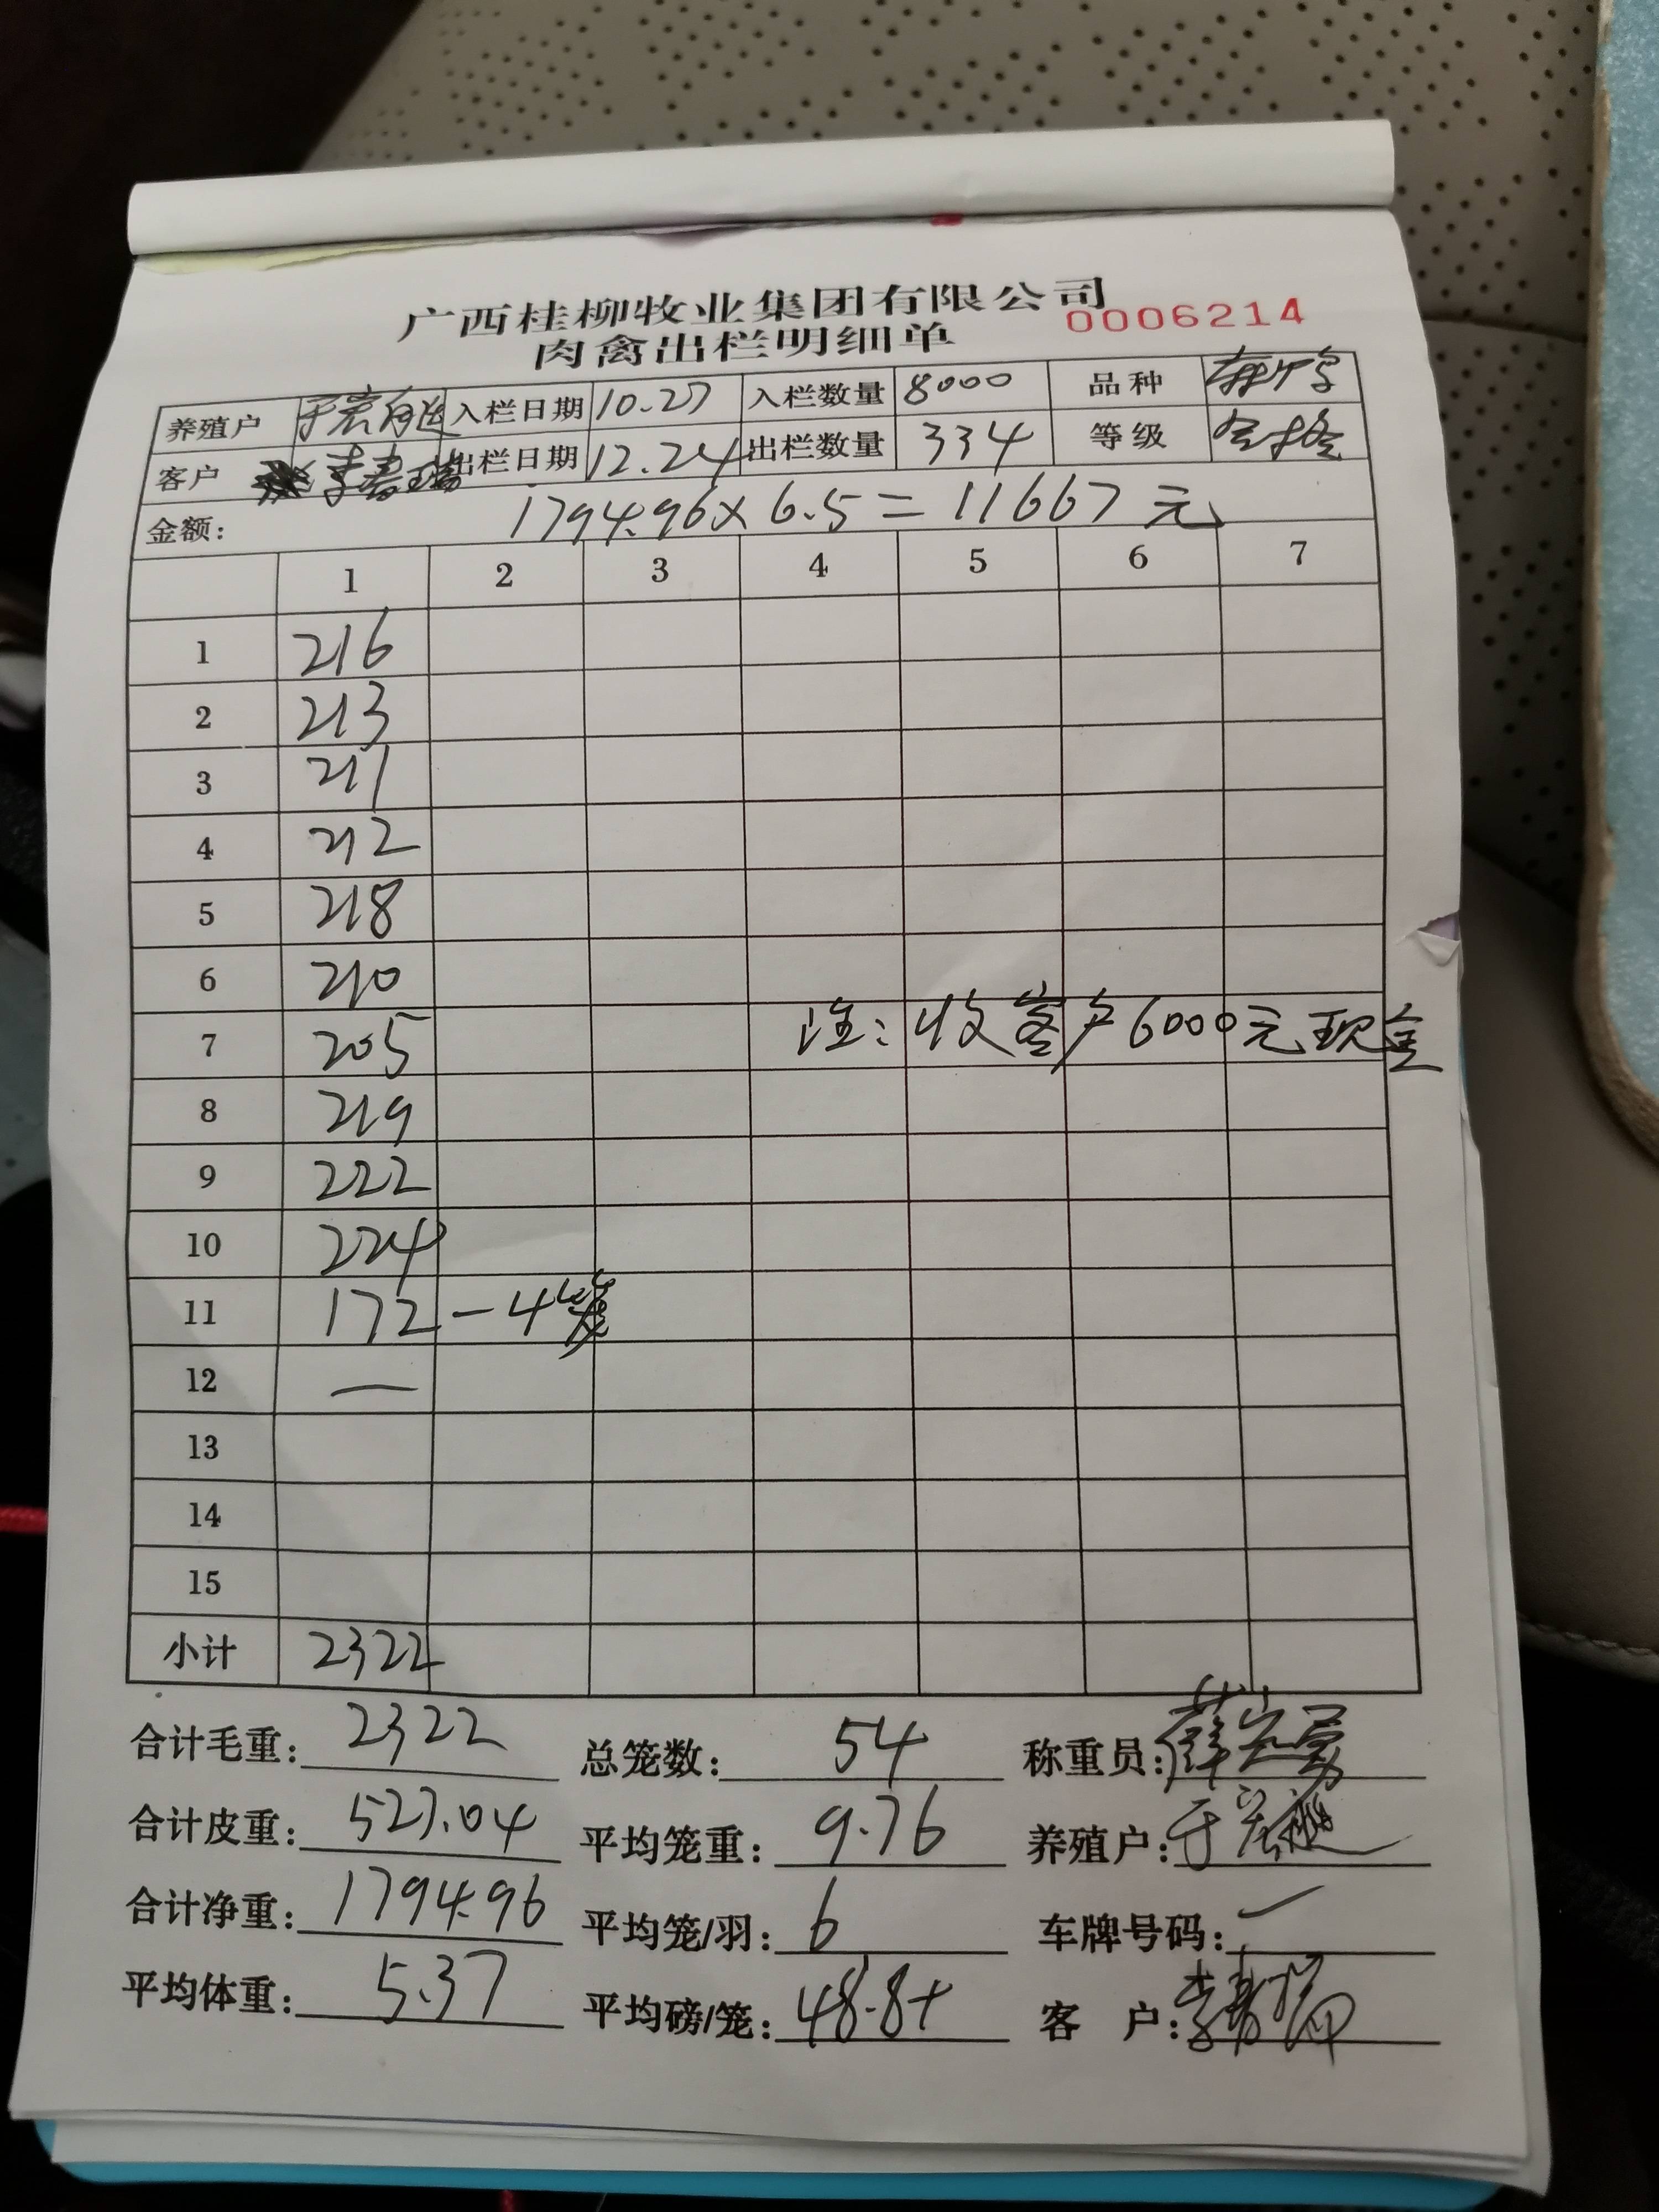 广西桂柳牧业集团有限公司
0006214
肉禽出栏明细单
养殖户 入栏日期 10.27 入栏数量 8000 品种
客户 李春瑞 出栏日期 12.24 出栏数量 334 等级
金额: 1794.96×6.5=11667元
1 2 3 4 5 6 7
1 216
2 213
3 211
4 212
5 218
6 210
7 205 注:收客户6000元现金
8 219
9 222
10 224
11 172-4笼
12 —
13
14
15
小计 2322
合计毛重: 2322 总笼数: 54 称重员:
合计皮重: 527.04 平均笼重: 9.76 养殖户:
合计净重: 1794.96 平均笼/羽: 6 车牌号码: —
平均体重: 5.37 平均磅/笼: 48.8+ 客 户: 李春瑞